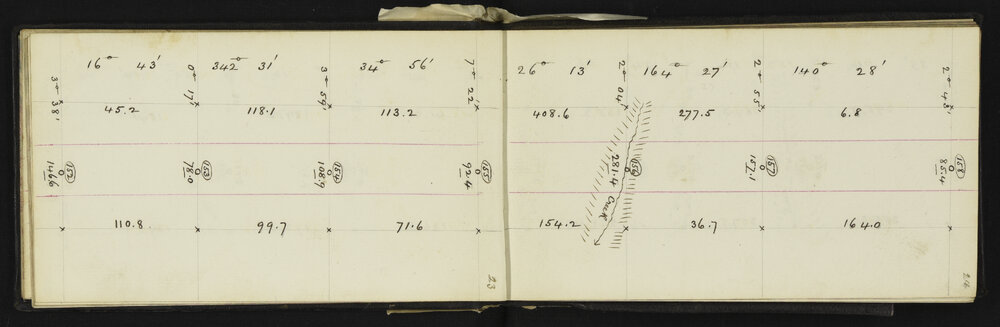 16° 43′ 342° 31′ 34° 56′
3° 38′
0° 17′
3° 59′
7° 22′
45.2 118.1 113.2
152 146.6
153 78.0
154 108.9
155 92.4
110.8 99.7 71.6
23
26° 13′ 164° 27′ 140° 28′
2° 04′
2° 55′
2° 43′
408.6 277.5 6.8
156 281.4
157 157.1
158 85.4
Creek
154.2 36.7 164.0